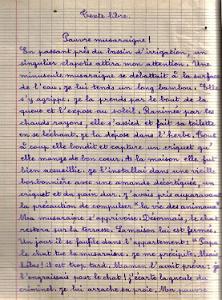 Texte libre.
Pauvre musaraigne !
En passant près du bassin d'irrigation, un
singulier clapotis attira mon attention. Une
minuscule musaraigne se débattait à la surface
de l'eau. Je lui tends un long bambou. Elle
s'y agrippe. Je la prends par le bout de la
queue et l'expose au soleil. Ranimée par les
chauds rayons, elle s'assied et fait sa toilette
en se léchant. Je la dépose dans l'herbe. Tout
à coup, elle bondit et capture un criquet qu'
elle mange de bon cœur. À la maison elle fut
bien accueillie. Je l'installai dans une vieille
bonbonnière avec une amande décortiquée, un
criquet et du pain dur. J'avais pris auparavant
la précaution de compulser "la vie des animaux"
Ma musaraigne s'apprivoise. Désormais, le chat
restera sur la terrasse. La maison lui est fermée.
Un jour il se faufile dans l'appartement.
le chat tue la musaraigne. Je me précipite.
il est trop tard. Mon
le chat ! J'écarte la gueule du
criminel. Je lui arrache sa proie. Ma pauvre